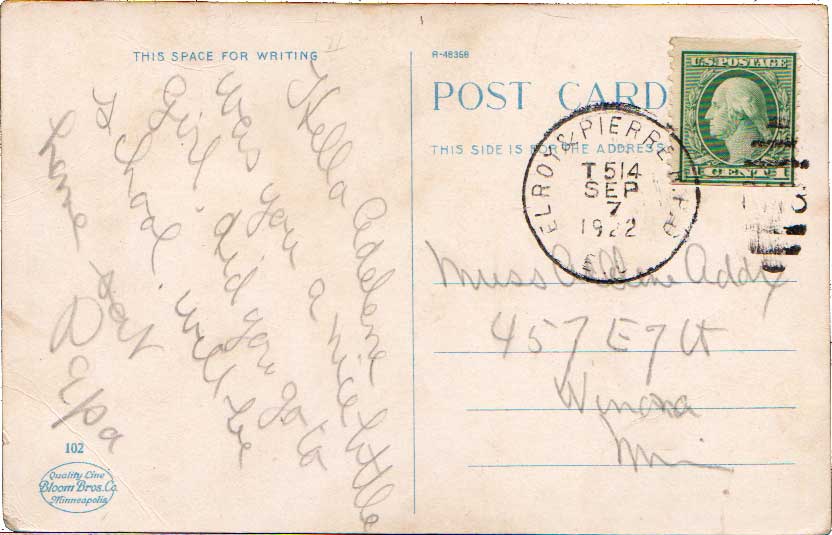 THIS SPACE FOR WRITING
Hello Adelene
was you a nice little
girl. did you go to
shool. will be
home sat
Papa
102
Quality Line
Bloom Bros. Co.
Minneapolis
R-48358
POST CARD
THIS SIDE IS FOR THE ADDRESS
U.S. POSTAGE
1 CENT 1
ELROY & PIERRE
T 514
SEP
7
1922
Miss Adelene Addy
457 E 7 St
Winona
Minn